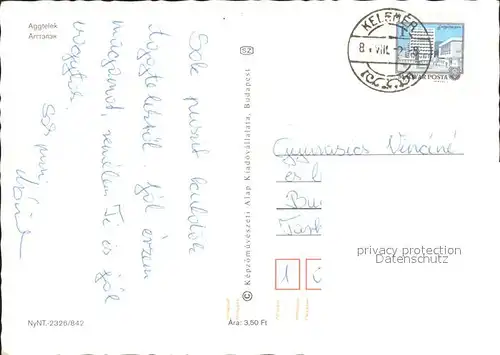 Aggtelek
Sok puszit küldök
Aggtelekről. Jól érzem
magamat, remélem Ti is jól
vagytok.
Sok puszi
SZ
© Képzőművészeti Alap Kiadóvállalata, Budapest
KELEMÉR
8
VIII.
MAGYAR POSTA
Gyumasics Vincéné
és
Bu
privacy protection
Datenschutz
1
NyNT.-2326/842
Ára: 3,50 Ft